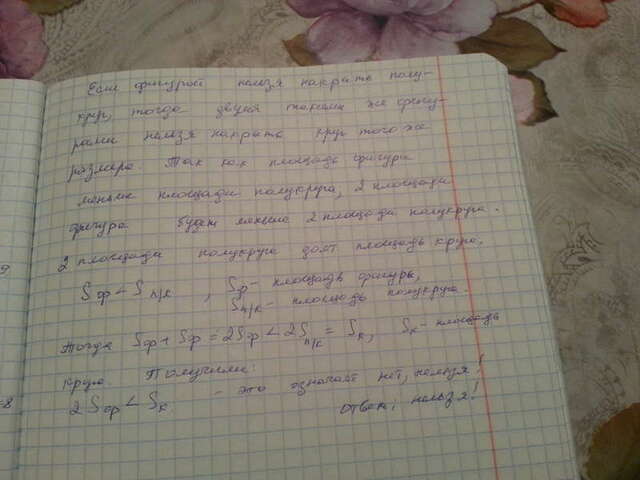 Если фигурой нельзя накрыть полу-
круг, тогда двумя такими же фигу-
рами нельзя накрыть круг того же
размера. Так как площадь фигуры
меньше площади полукруга, 2 площади
фигуры будет меньше 2 площади полукруга.
2 площади полукруга дают площадь круга,
Sф < Sп/к , Sф - площадь фигуры,
Sп/к - площадь полукруга.
Тогда Sф + Sф = 2Sф < 2Sп/к = Sк, Sк - площадь
круга Получили:
2Sф < Sк - это означает нет, нельзя!
Ответ: нельзя!
9
-8